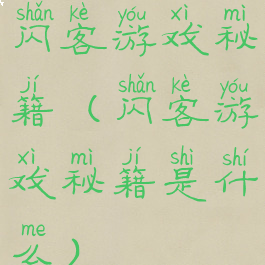 shǎn kè yóu xì mì
闪客游戏秘
jí shǎn kè yóu
籍（闪客游
xì mì jí shì shí
戏秘籍是什
me
么）